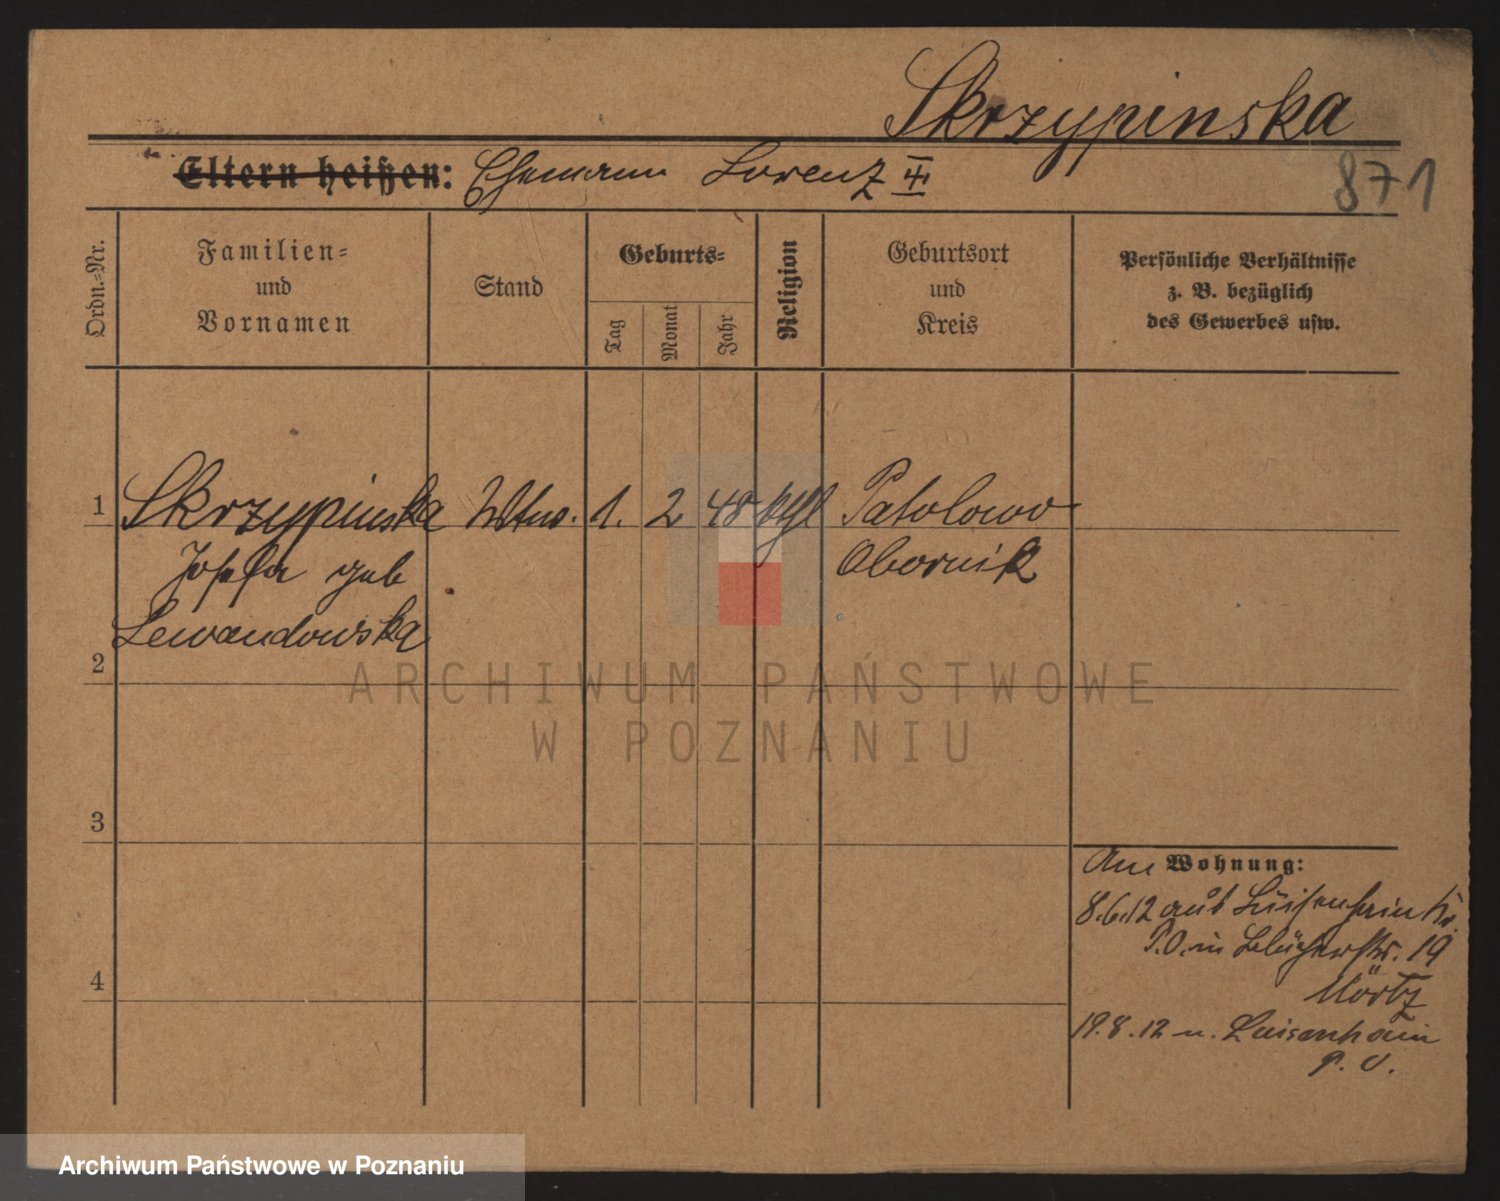 Skrzypinska
Eltern heißen: Ehemann Lorenz
871
Ordn.-Nr.
Familien-
und
Vornamen
Stand
Geburts-
Tag
Monat
Jahr
Religion
Geburtsort
und
Kreis
Persönliche Verhältnisse
z. B. bezüglich
des Gewerbes usw.
1 Skrzypinska Wtwe. 1. 2 48 kthl Patolowo
Josefa geb Obornik
Lewandowska
2
ARCHIWUM PAŃSTWOWE
W POZNANIU
3
Am Wohnung:
8.6.12 aus Luisenhain Kr.
P.O. in Blücherstr. 19
4
19.8.12 n. Luisenhain
P. O.
Archiwum Państwowe w Poznaniu